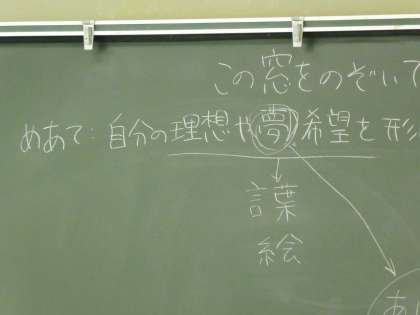 この窓をのぞいて
めあて：自分の理想や夢希望を形
言葉
絵
あ